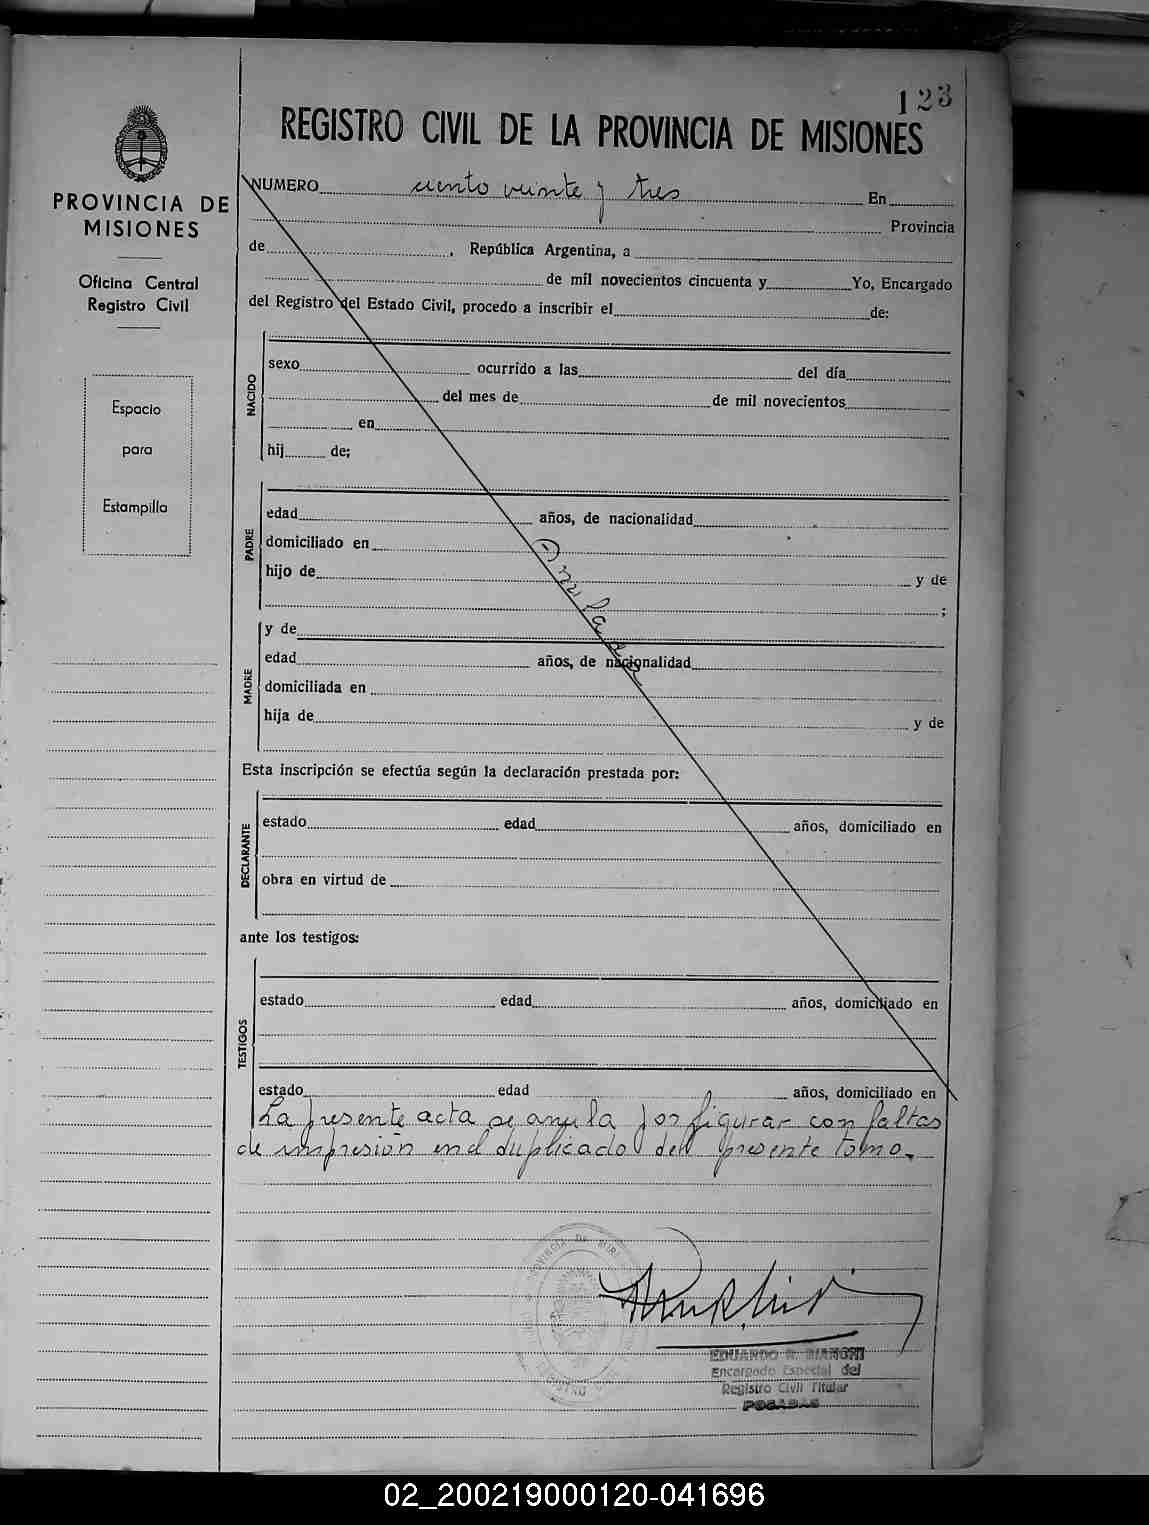 123
REGISTRO CIVIL DE LA PROVINCIA DE MISIONES
PROVINCIA DE
MISIONES
Oficina Central
Registro Civil
Espacio
para
Estampilla
NUMERO ciento veinte y tres En
Provincia
de , República Argentina, a
de mil novecientos cincuenta y Yo, Encargado
del Registro del Estado Civil, procedo a inscribir el de:
NACIDO
sexo ocurrido a las del día
del mes de de mil novecientos
en
hij de;
PADRE
edad años, de nacionalidad
domiciliado en
hijo de y de
;
Anulada
MADRE
y de
edad años, de nacionalidad
domiciliada en
hija de y de
Esta inscripción se efectúa según la declaración prestada por:
DECLARANTE
estado edad años, domiciliado en
obra en virtud de
ante los testigos:
TESTIGOS
estado edad años, domiciliado en
estado edad años, domiciliado en
La presente acta se anula por figurar con faltas
de impresión en el duplicado del presente tomo.
PROVINCIA DE
REGISTRO
EDUARDO R. BIANCHI
Encargado Especial del
Registro Civil Titular
POSADAS
02_200219000120-041696